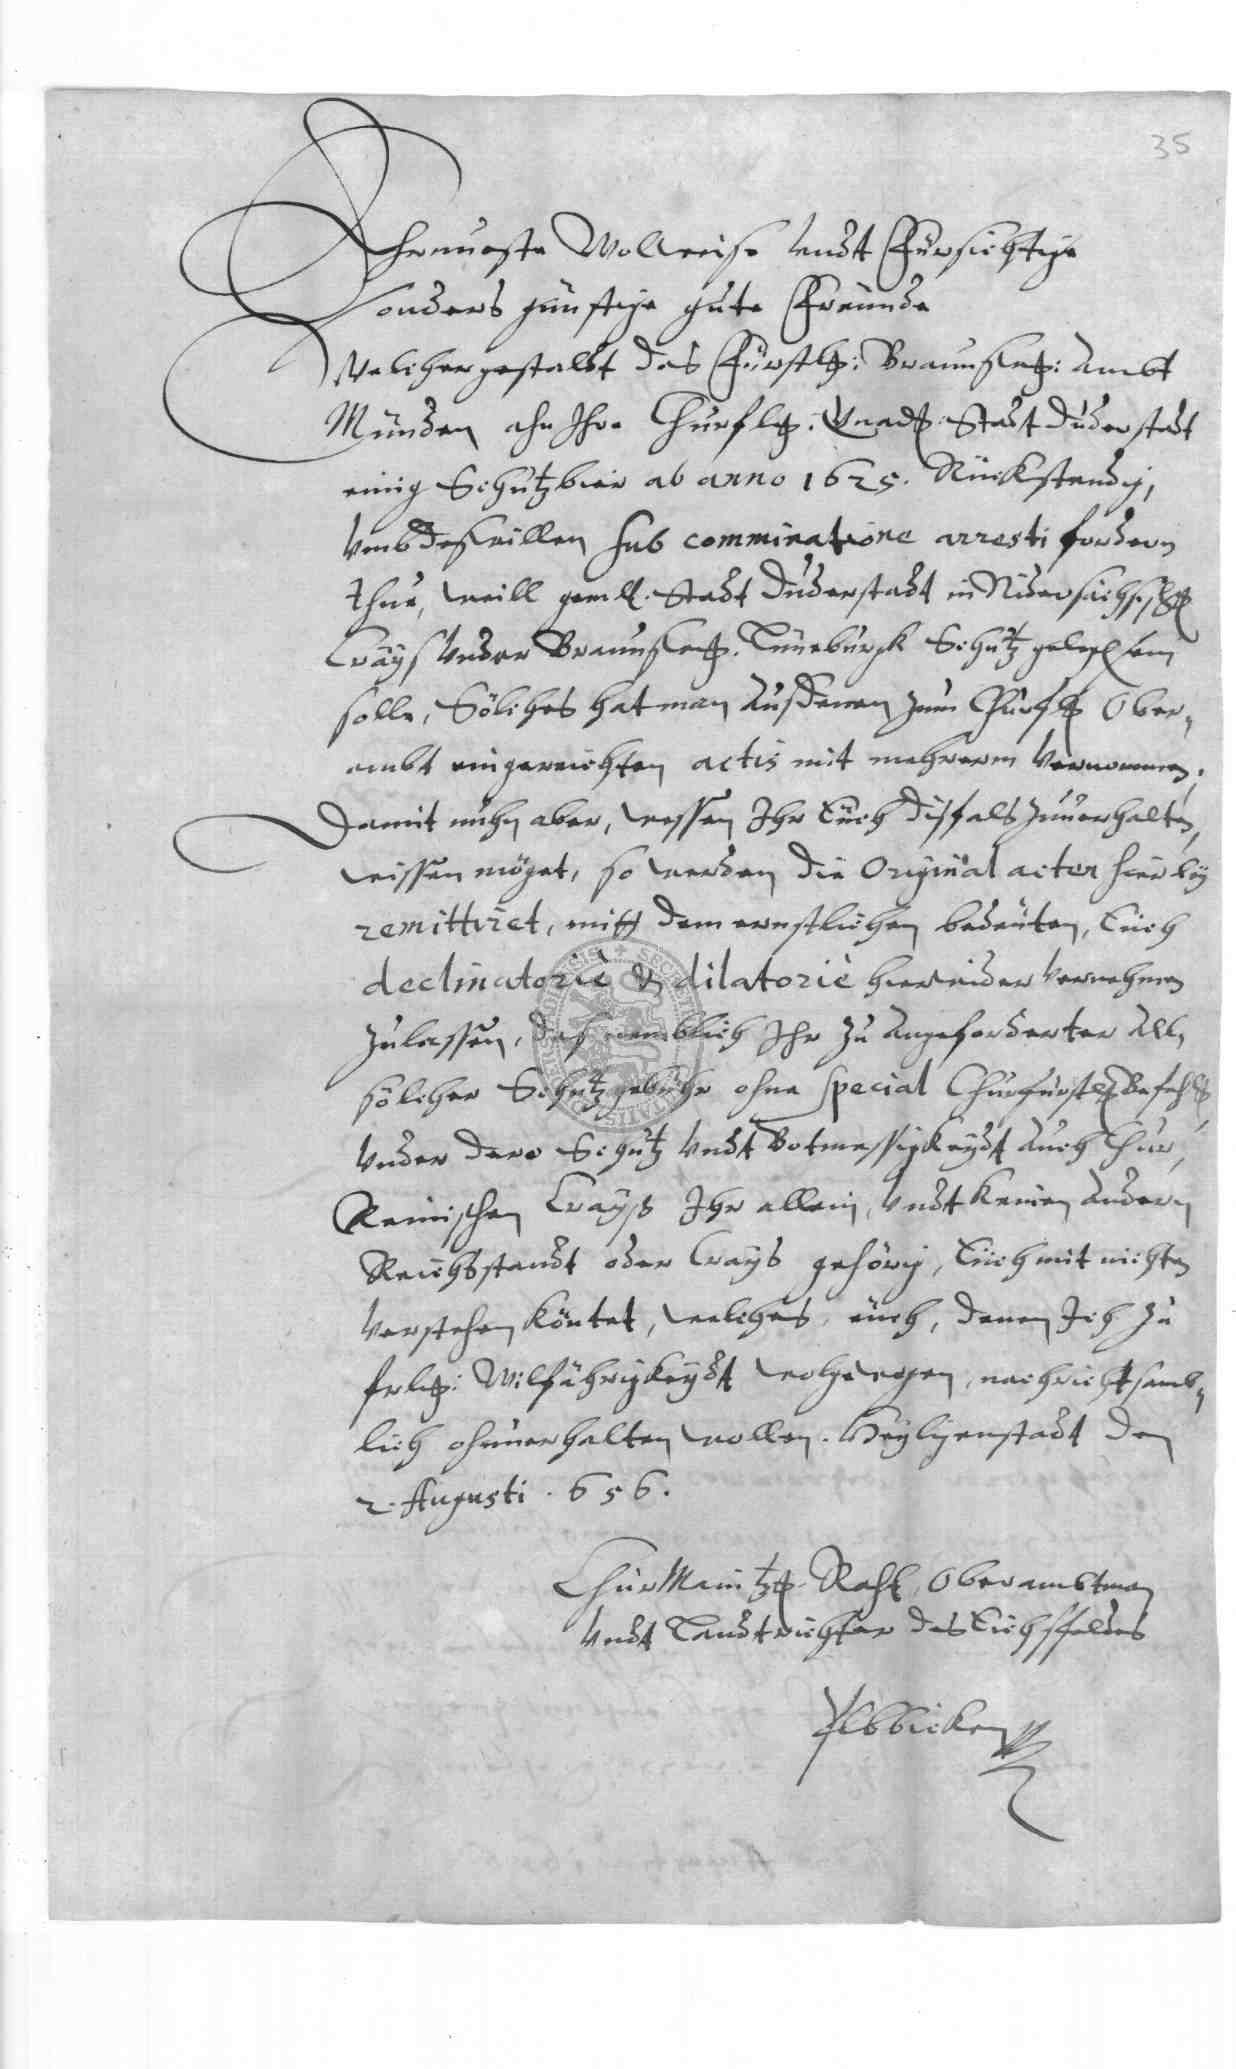 35
Ehrnueste Wollweise vndt Fürsichtige
sonders günstige gute Freünde
Welicher gestaldt das Fürstlg: Braunschwg: Ambt
Münden ahn Ihro Churflg. Gnadt Stadt Duderstadt
einig Schutzbier ab anno 1625. Rückstendig,
vmb deswillen sub comminatione arresti fordern
thue, weill geml. Stadt Duderstadt in Nidersächss.
Crayß vnder Braunschwg. Lüneburgk Schutz gelegen
solle, Söliches hat man Auß denen zum Churflg Ober,
ambt eingereichten actis mit mehrerm vernommen,
Damit nuhn aber, wessen Ihr Eüch dißfals zuuerhalten,
wissen möget, so werden die Original acten hierbey
remittiret, mitt dem ernstlichen bedeüten, Eüch
declinatoriè & dilatoriè hierwider vernehmen
zulassen, daß nemblich Ihr zu angeforderter All,
sölicher Schutzgebühr ohne special Churfürstl. Befehlch
vnder dero Schutz vndt Botmessigkeydt Auch Chur,
Reinischen Crayß Ihr allein, vndt keinen Andern
Reichsstandt oder Crayß gehörig, Eüch mit nichten
verstehen köntet, weliches eüch, denen Ich zu
frlg: Wilfährigkeydt wolgewogen, nachrichtsamb,
lich ohnuerhalten wollen. Heyligenstadt den
2. Augusti. 656.
ChurMaintzg. Raht, Oberambtman
vndt Landtrichter des Eichsfeldes